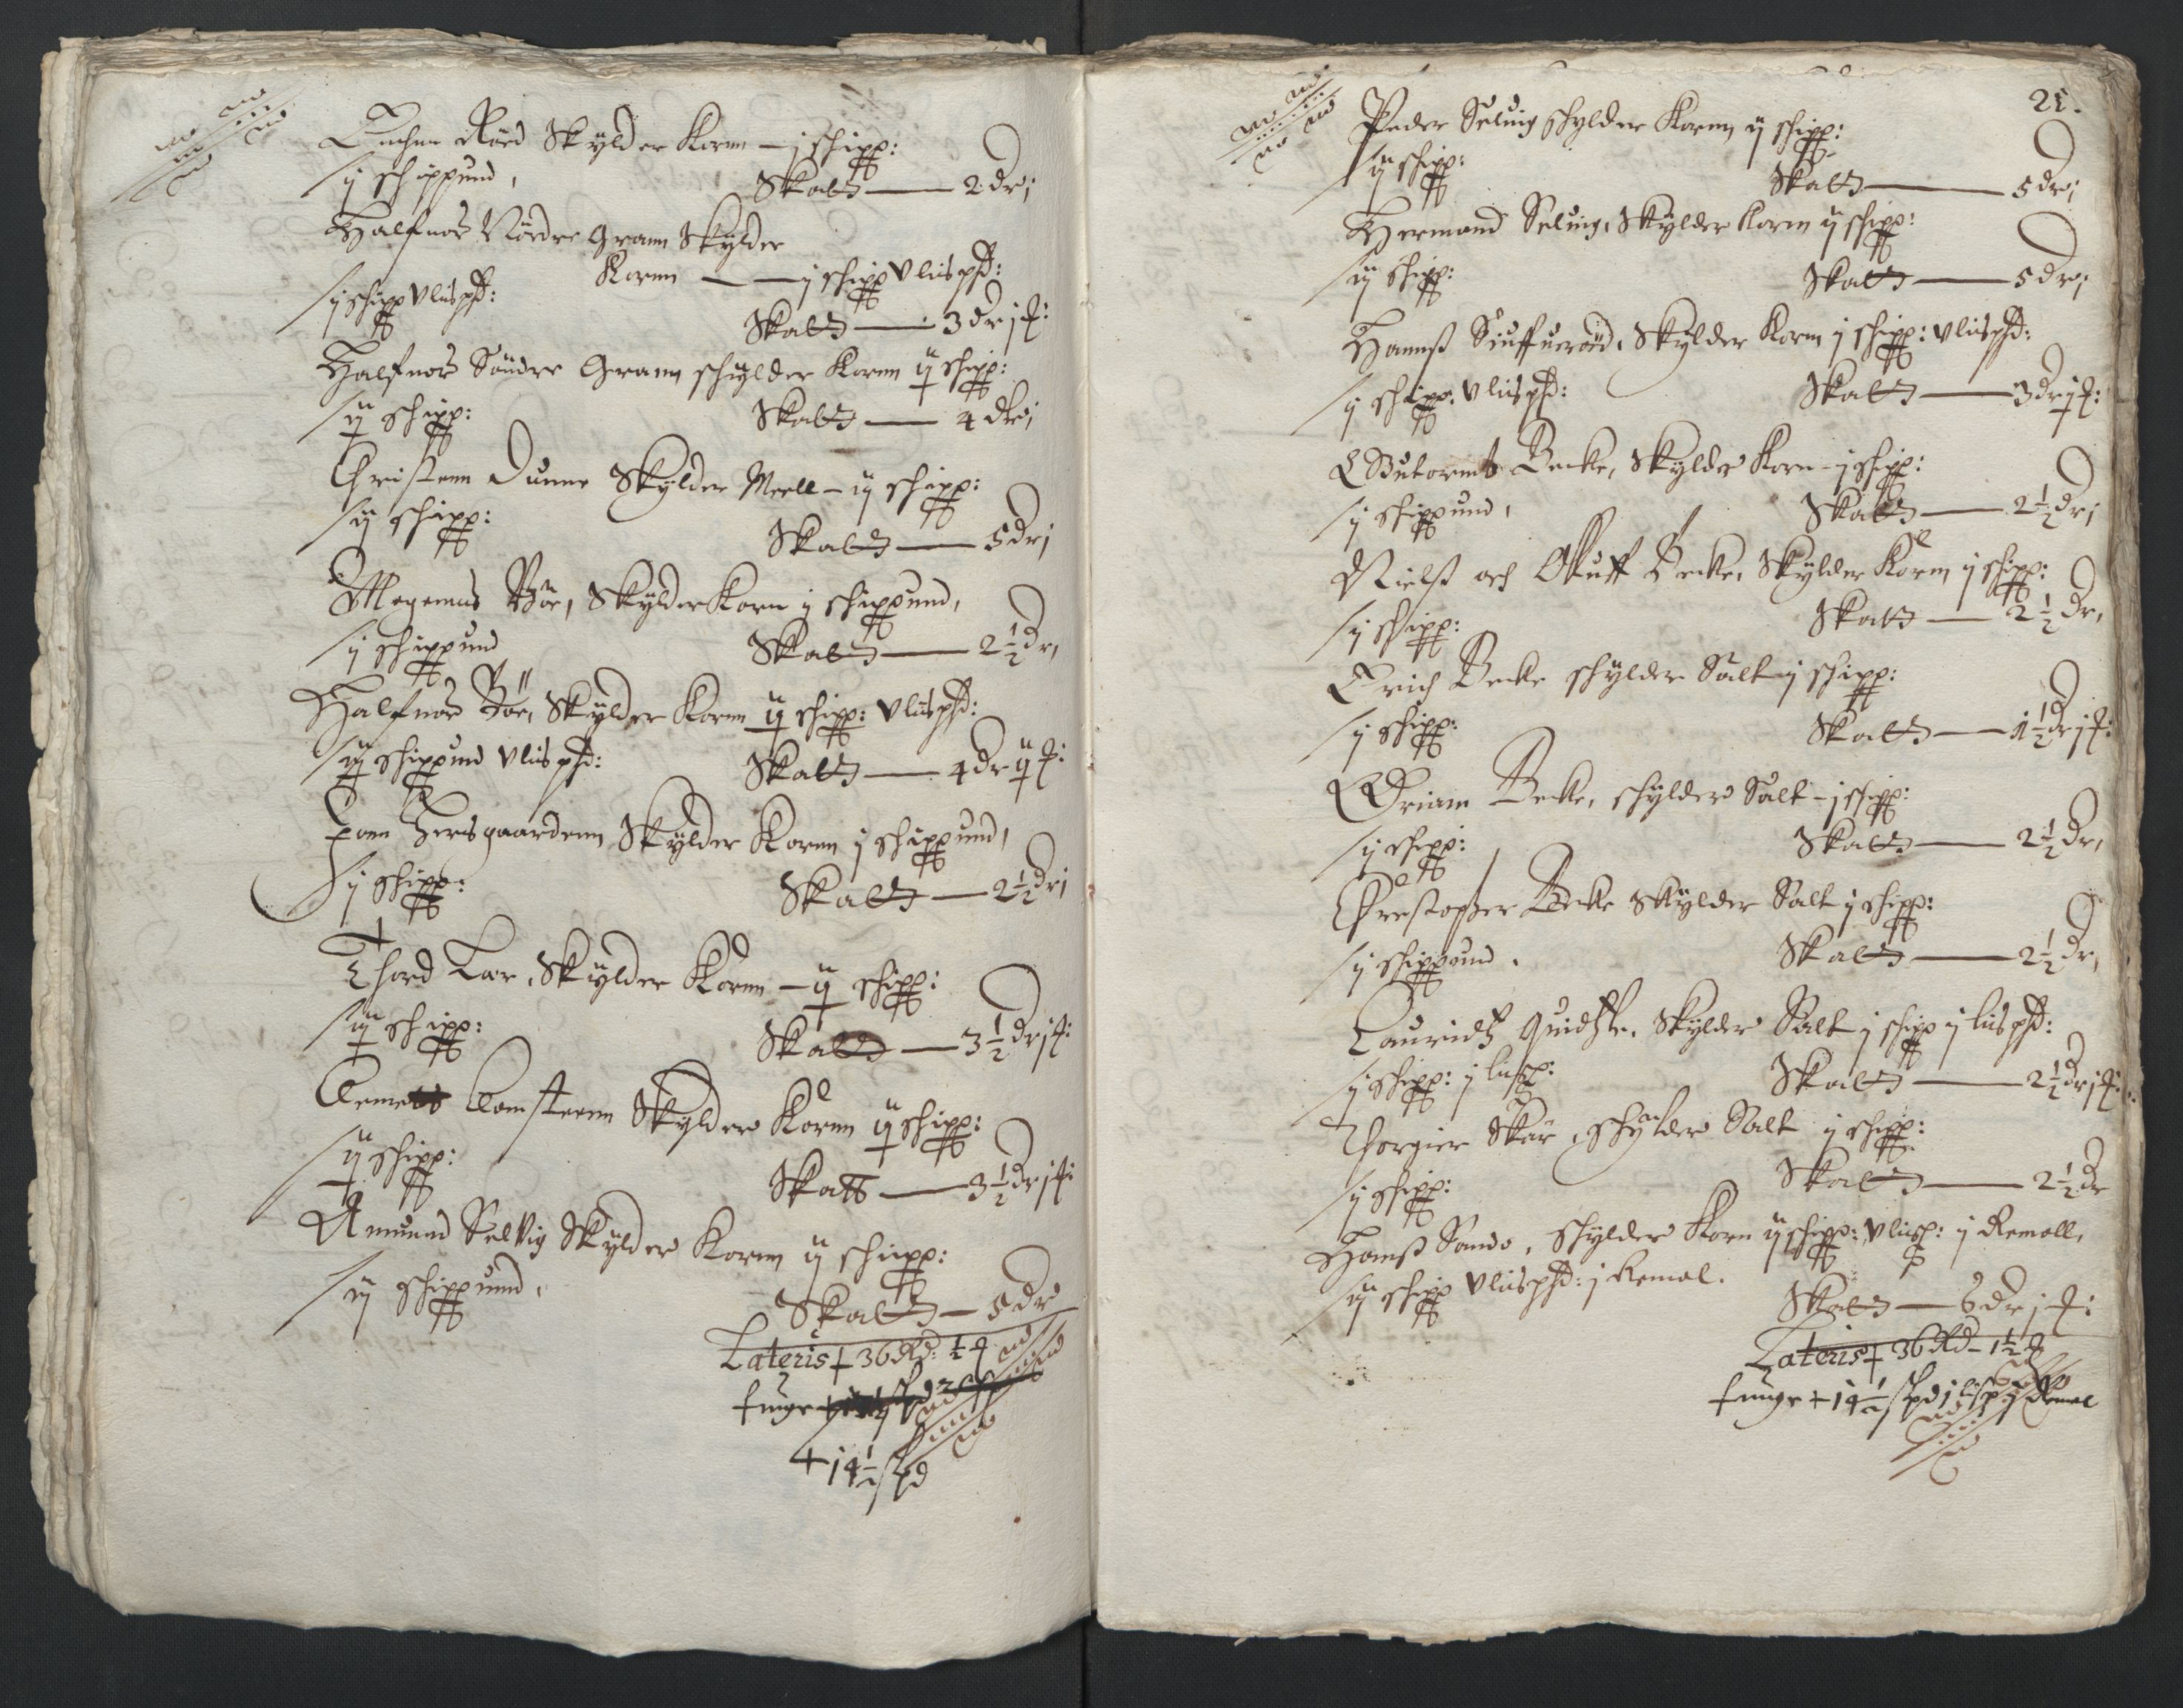 Rörd Skylder Korn – j schipp:
j schippund,
Skatt — 2 dr;
Halfuor Nördre Gram Skylder
Kornn — j schipp V lisspd:
j schipp V lisspd:
Skatt — 3 dr j ꝶ:
Halfuor Söndre Gram schylder Kornn ij schipp:
ij schipp:
Skatt — 4 dr;
Christenn Dunne Skylder Meell – ij schipp:
ij schipp:
Skatt — 5 dr;
Mogenns Böe, Skylder Korn j schippund,
j schippund
Skatt — 2½ dr,
Halfuor Böe, Skylder Kornn ij schipp: V lisspd:
ij schippund V liis pd:
Skatt — 4 dr ij ꝶ:
Skylder Kornn j schippund,
j schipp:
Skatt — 2½ dr;
Thord Lær, Skylder Kornn – ij schipp:
ij schipp:
Skatt — 3½ dr j ꝶ:
Skylder Kornn ij schipp:
ij schipp:
Skatt — 3½ dr j ꝶ:
Amund Selvig Skylder Kornn ij schipp:
ij schippund,
Skatt — 5 dr
Lateris + 36 Rd: ½ ꝶ
+ 14½ spd
21.
Peder Seluig schylder Kornn ij schipp:
ij schipp:
Skatt — 5 dr;
Hermand Seluig, Skylder Korn ij schipp:
ij schipp:
Skatt — 5 dr;
Hannß Siuffueröd, Skylder Korn j schipp: V liispd:
j schipp: V liispd:
Skatt — 3 dr j ꝶ:
Guttormb Becke, Skylder Korn – j schipp:
j schippund,
Skatt — 2½ dr;
Nielß och Oluff Becke, Skylder Korn j schipp:
j schipp:
Skatt — 2½ dr,
Erich Becke schylder Salt j schipp:
j schipp:
Skatt — 1½ dr j ꝶ:
Becke, schylder Salt – j schipp:
j schipp:
Skatt — 2½ dr,
Christopher Becke Skylder Salt j schipp:
j schippund.
Skatt — 2½ dr,
Lauridtz Skylder Salt j schipp j liispd:
j schipp: j lisp:
Skatt — 2½ dr j ꝶ:
Thorgier Skär, schylder Salt j schipp:
j schipp:
Skatt — 2½ dr
Hanß Sando, schylder Korn ij schipp: V lisp: j Remoll,
ij schipp V liispd: j Remol.
Skatt — 6 dr j ꝶ:
Lateris + 36 Rd – 1½ ꝶ
+ 14½ spd